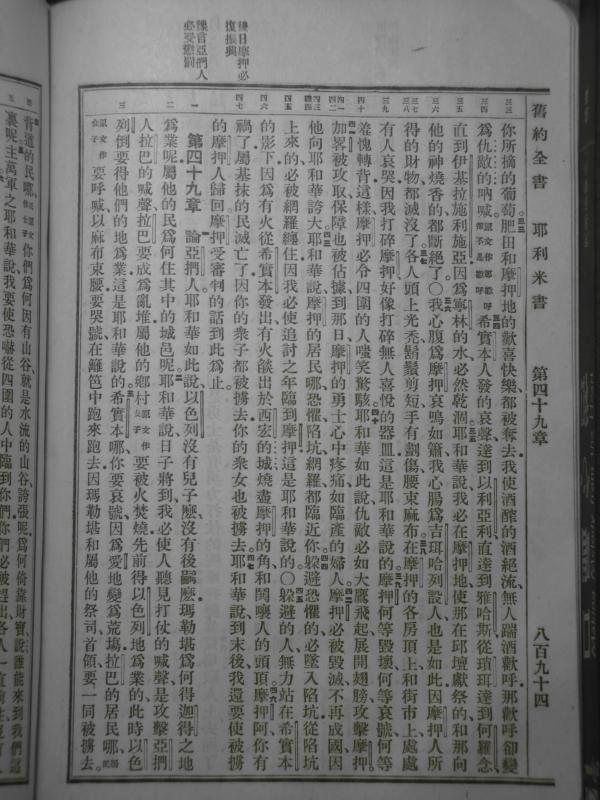 舊約全書 耶利米書 第四十九章 八百九十四
你所摘的葡萄肥田和摩押地的歡喜快樂都被奪去我使酒醡的酒絕流無人踹酒歡呼那歡呼卻變
爲仇敵的吶喊原文作那歡呼卻不是歡呼希實本人發的哀聲達到以利亞利直達到雅哈斯從瑣珥達到何羅念
直到伊基拉施利施亞因爲寧林的水必然乾涸耶和華說我必在摩押地使那在邱壇獻祭的和那向
他的神燒香的都斷絕了○我心腹爲摩押哀鳴如簫我心腸爲吉珥哈列設人也是如此因摩押人所
得的財物都滅沒了各人頭上光禿鬍鬚剪短手有劃傷腰束麻布在摩押的各房頂上和街市上處處
有人哀哭因我打碎摩押好像打碎無人喜悅的器皿這是耶和華說的摩押何等毀壞何等哀號何等
羞愧轉背這樣摩押必令四圍的人嗤笑驚駭耶和華如此說仇敵必如大鷹飛起展開翅膀攻擊摩押
加畧被攻取保障也被佔據到那日摩押的勇士心中疼痛如臨產的婦人摩押必被毀滅不再成國因
他向耶和華誇大耶和華說摩押的居民哪恐懼陷坑網羅都臨近你躲避恐懼的必墜入陷坑從陷坑
上來的必被網羅纏住因我必使追討之年臨到摩押這是耶和華說的○躲避的人無力站在希實本
的影下因爲有火從希實本發出有火燄出於西宏的城燒盡摩押的角和鬨嚷人的頭頂摩押阿你有
禍了屬基抹的民滅亡了因你的衆子都被擄去你的衆女也被擄去耶和華說到末後我還要使被擄
的摩押人歸回摩押受審判的話到此爲止
後日摩押必
復振興
第四十九章 論亞捫人耶和華如此說以色列沒有兒子麼沒有後嗣麼瑪勒堪爲何得迦得之地
豫言亞捫人
必受懲罰
爲業呢屬他的民爲何住其中的城邑呢耶和華說日子將到我必使人聽見打仗的喊聲攻擊亞捫
人拉巴的喊聲拉巴要成爲亂堆屬他的鄉村原文作女子要被火焚燒先前得以色列地爲業的此時以色
列倒要得他們的地爲業這是耶和華說的希實本哪你要哀號因爲愛地變爲荒場拉巴的居民哪居民
原文作女子要呼喊以麻布束腰要哭號在籬笆中跑來跑去因瑪勒堪和屬他的祭司首領要一同被擄去
背道的民哪民原文作女子你們爲何因有山谷就是水流的山谷誇張呢爲何倚靠財寶說誰能來到我們這
裏呢主萬軍之耶和華說我要使恐嚇從四圍的人中臨到你們你們必被趕出各人一直